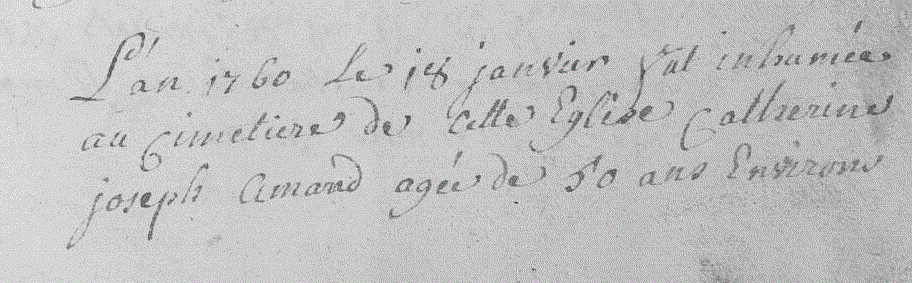 L'an 1760 Le 18 janvier fut inhumée
au Cimetiere de Cette Eglise Catherine
joseph Amand agée de 50 ans Environs